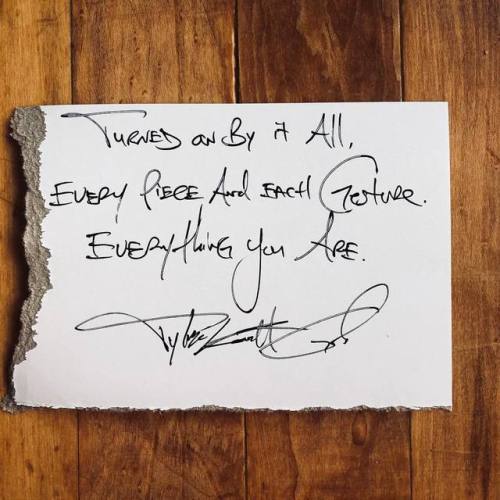 Turned on By it All,
Every Piece And Each Gesture.
Everything You Are.
Tyler Knott Gregson